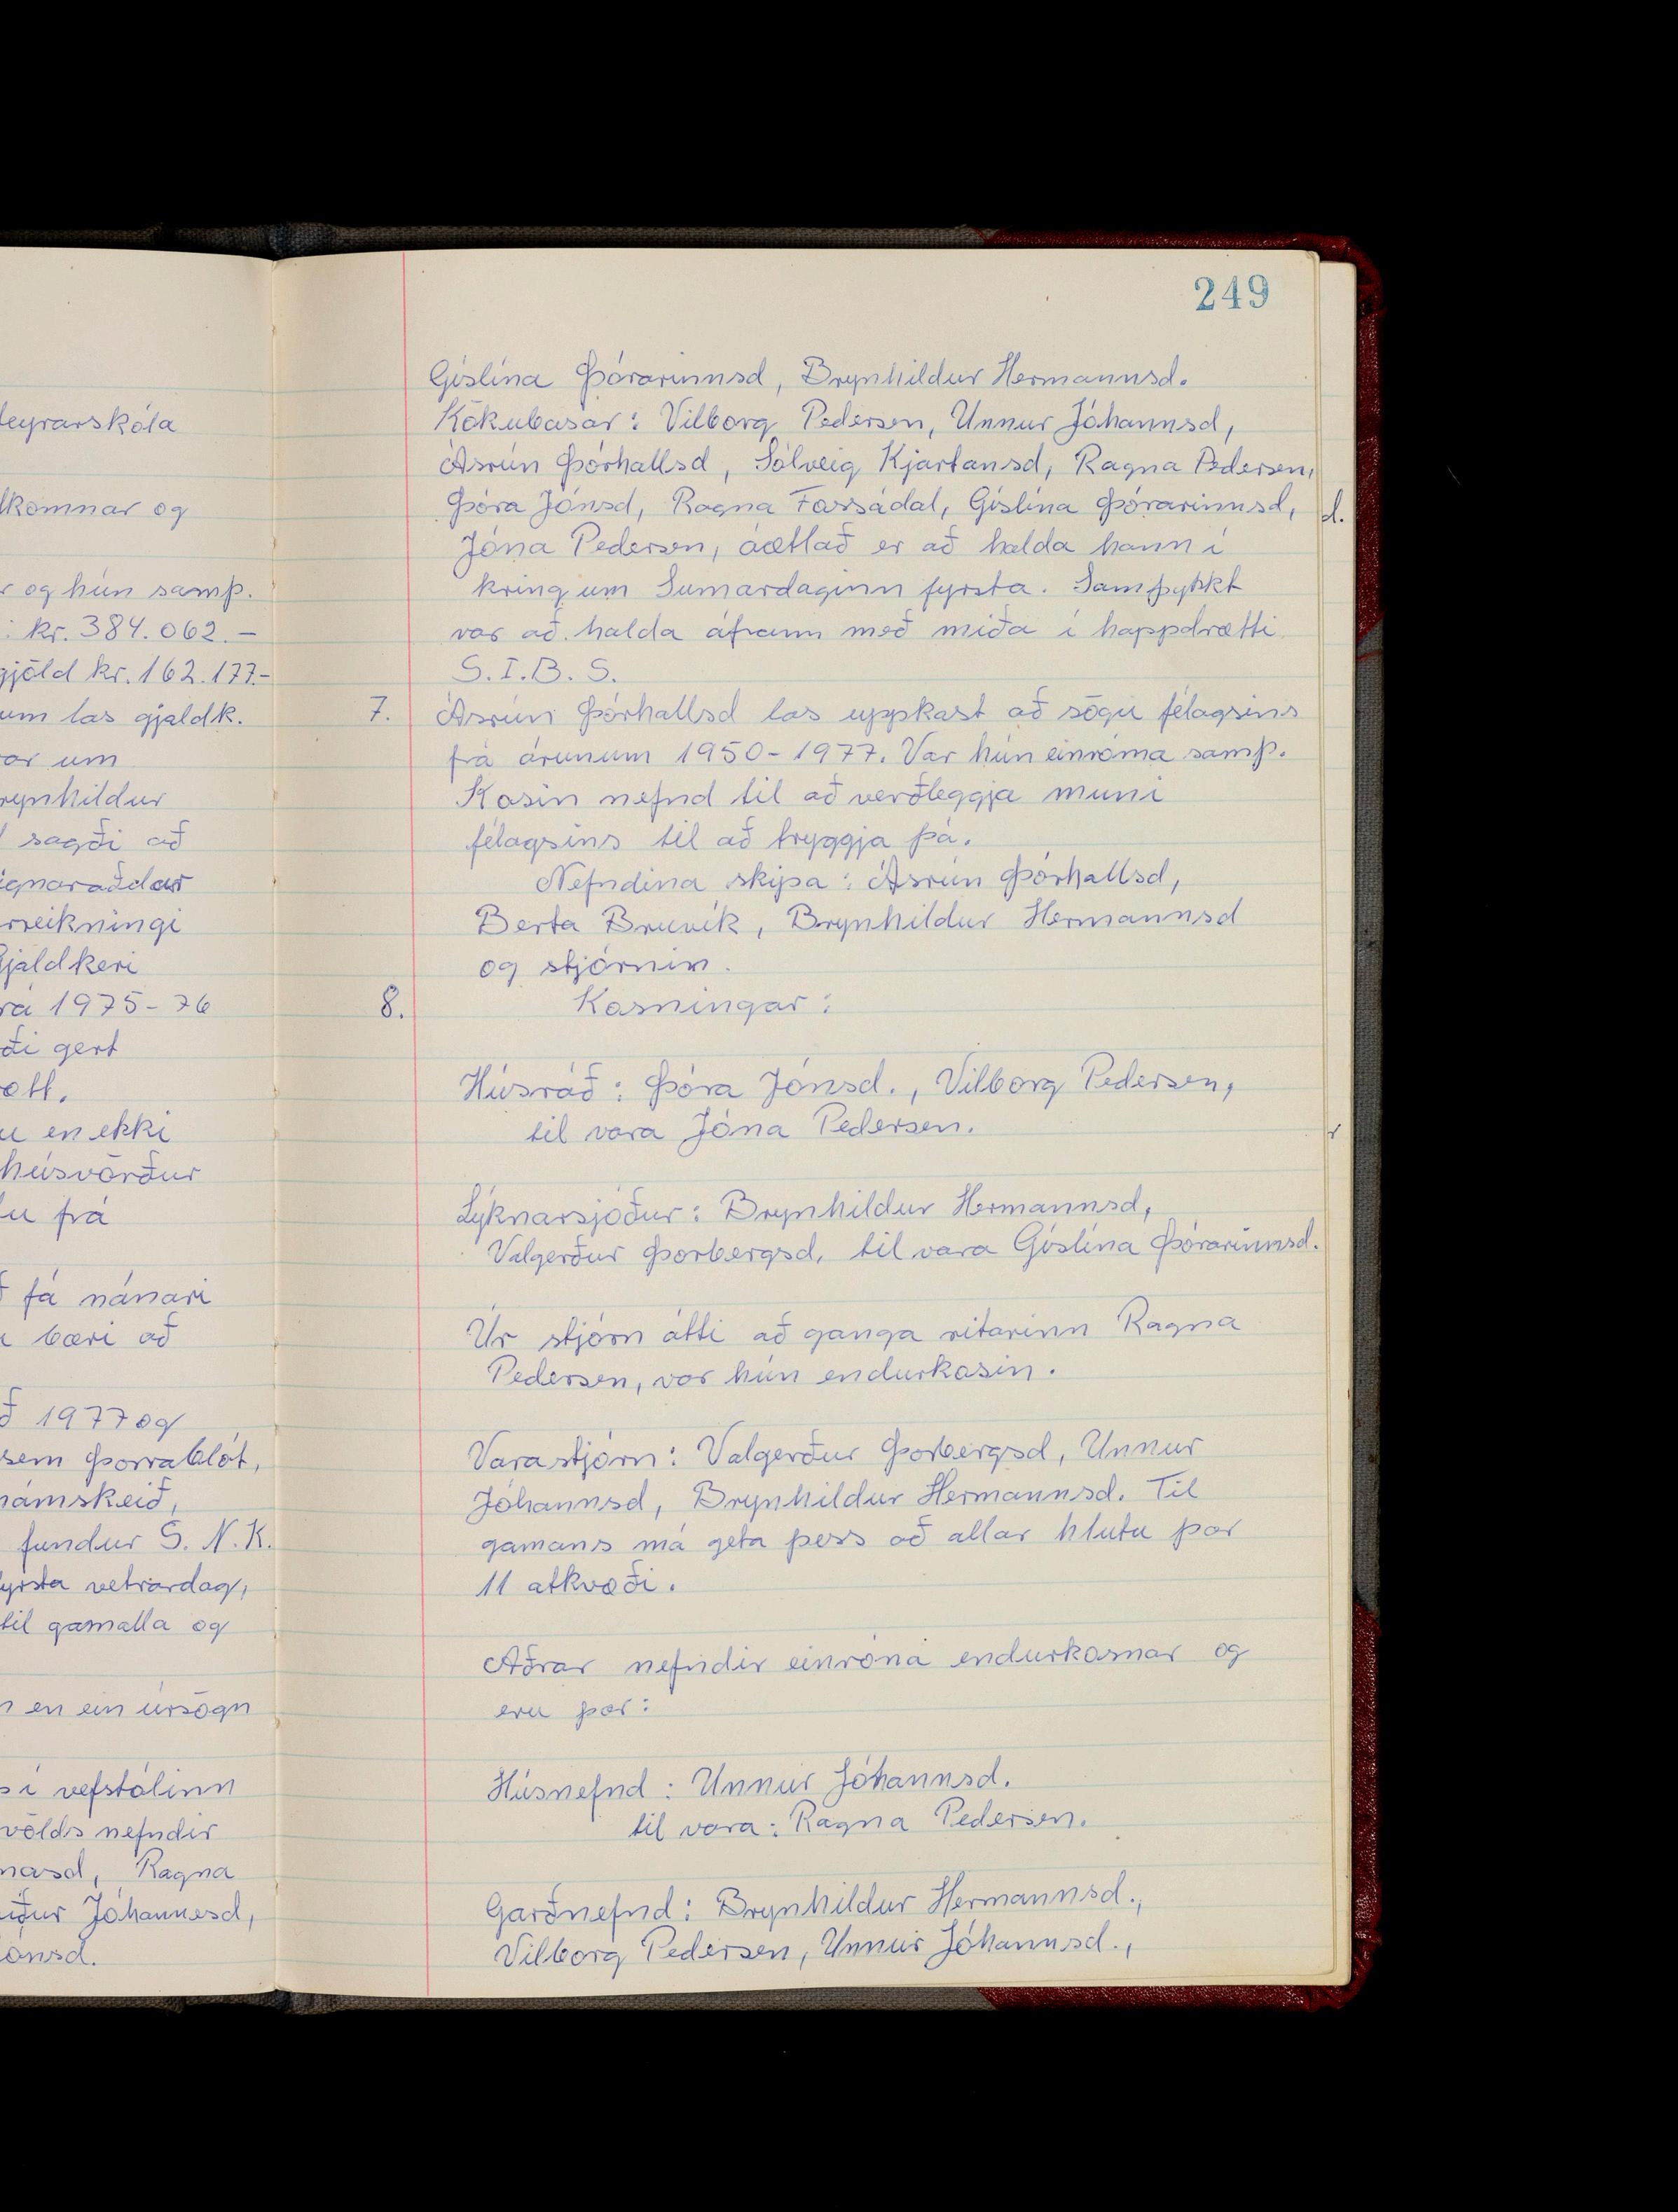 leyrarskóla
lkomnar og
r og hún samþ.
: kr. 384.062.-
gjöld kr. 162.177.-
um las gjaldk.
or um
rynhildur
sagði að
ignaraðdar
rreikningi
gjaldkeri
ra 1975-76
ði gert
ott.
u en ekki
húsvörður
u frá
fá nánari
bæri að
ð 1977 og
sem Þorrablót,
námskeið,
fundur S.N.K.
yrsta vetrardag,
til gamalla og
en ein úrsögn
s í vefstólinn
völds nefndir
nasd, Ragna
iður Jóhannesd,
onsd.
249
Gíslína Þórarinnsd, Brynhildur Hermannsd.
Kökubasar: Vilborg Pedersen, Unnur Jóhannsd,
Ásrún Þórhallsd, Sólveig Kjartansd, Ragna Pedersen,
Þóra Jónsd, Ragna Fossádal, Gíslína Þórarinnsd,
d.
Jóna Pedersen, áætlað er að halda hann í
kring um Sumardaginn fyrsta. Samþykkt
var að halda áfram með miða í happdrætti
S.I.B.S.
7. Ásrún Þórhallsd las uppkast að sögu félagsins
frá árunum 1950-1977. Var hún einróma samþ.
Kosin nefnd til að verðleggja muni
félagsins til að tryggja þá.
Nefndina skipa: Ásrún Þórhallsd,
Berta Bruvik, Brynhildur Hermannsd
og stjórnin.
8. Kosningar:
Húsráð: Þóra Jónsd., Vilborg Pedersen,
til vara Jóna Pedersen.
r
Lýknarsjóður: Brynhildur Hermannsd,
Valgerður Þorbergsd, til vara Gíslína Þórarinnsd.
Úr stjórn átti að ganga ritarinn Ragna
Pedersen, var hún endurkosin.
Varastjórn: Valgerður Þorbergsd, Unnur
Jóhannsd, Brynhildur Hermannsd. Til
gamans má geta þess að allar hlutu þær
11 atkvæði.
Aðrar nefndir einróna endurkosnar og
eru þær:
Húsnefnd: Unnur Jóhannsd.
til vara: Ragna Pedersen.
Garðnefnd: Brynhildur Hermannsd.,
Vilborg Pedersen, Unnur Jóhannsd.,